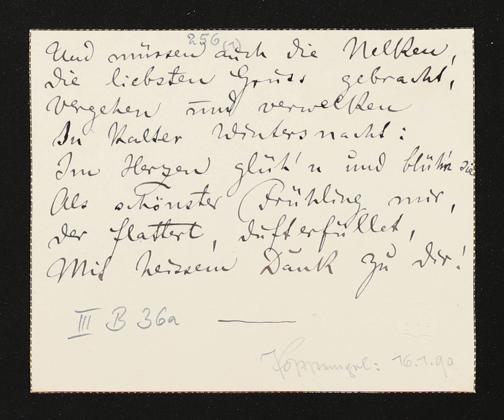 256 (1)
Und müssen auch die Nelken,
die liebsten Gruss gebracht,
vergehen und verwelken
In kalter Wintersnacht:
Im Herzen glüh'n und blüh'n sie
Als schönster Frühling mir,
der flattert, dufterfüllet,
Mit heissem Dank zu dir!
III B 36a
16.1.90